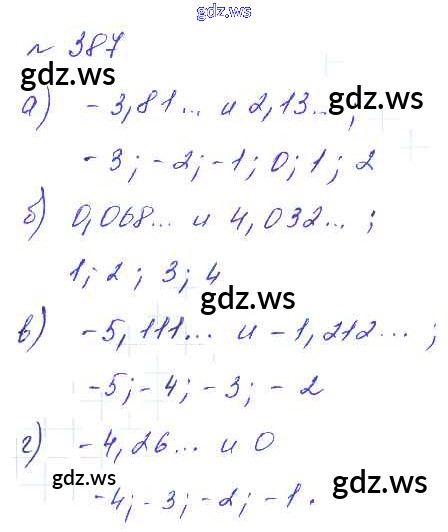 gdz.ws
№ 387
gdz.ws gdz.ws
а) -3,81... и 2,13... ;
-3; -2; -1; 0; 1; 2
б) 0,068... и 4,032... ;
1; 2; 3; 4
gdz.ws
в) -5,111... и -1,212... ;
-5; -4; -3; -2
г) -4,26... и 0
gdz.ws gdz.ws
-4; -3; -2; -1.